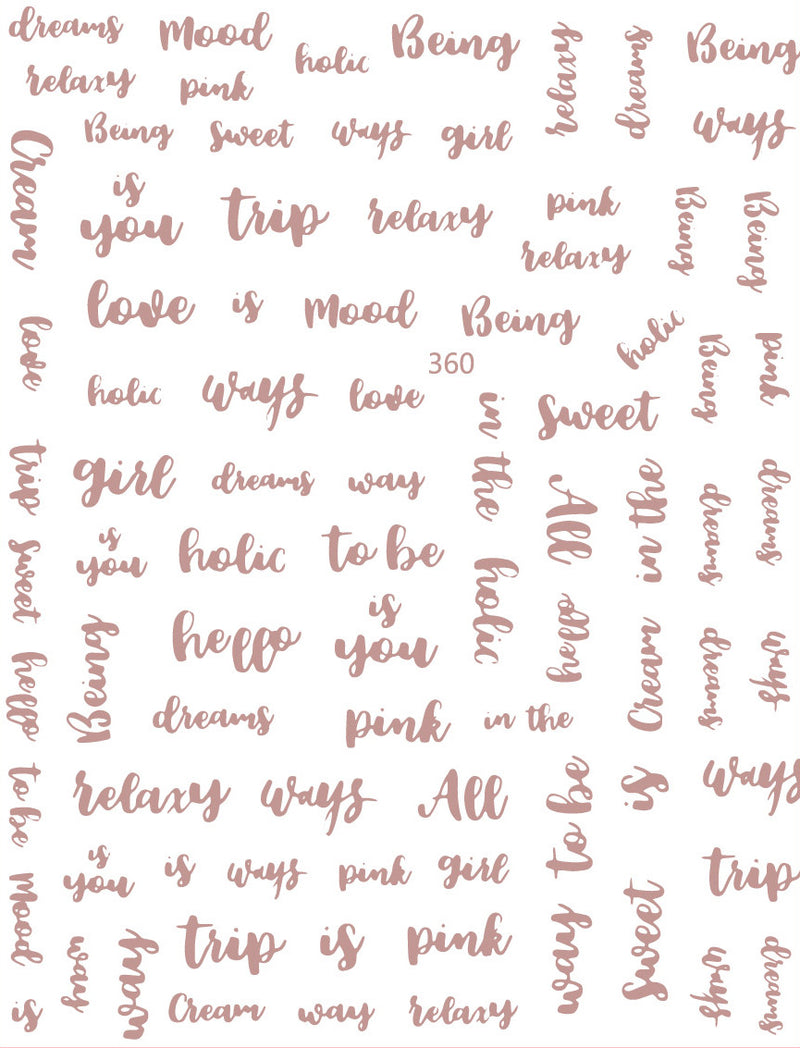 dreams Mood holic Being relaxy dreams Being
relaxy pink
Being sweet ways girl ways
Cream
is
you trip relaxy pink Being Being
relaxy
love is Mood Being
love holic Being pink
360
holic ways love in the sweet
trip girl dreams way All in the dreams dreams
sweet is
you holic to be holic hello
hello Being hello is
you Cream dreams ways
dreams pink in the
to be relaxy ways All way to be is ways
Mood is
you is ways pink girl sweet trip
way way trip is pink ways dreams
is Cream way relaxy